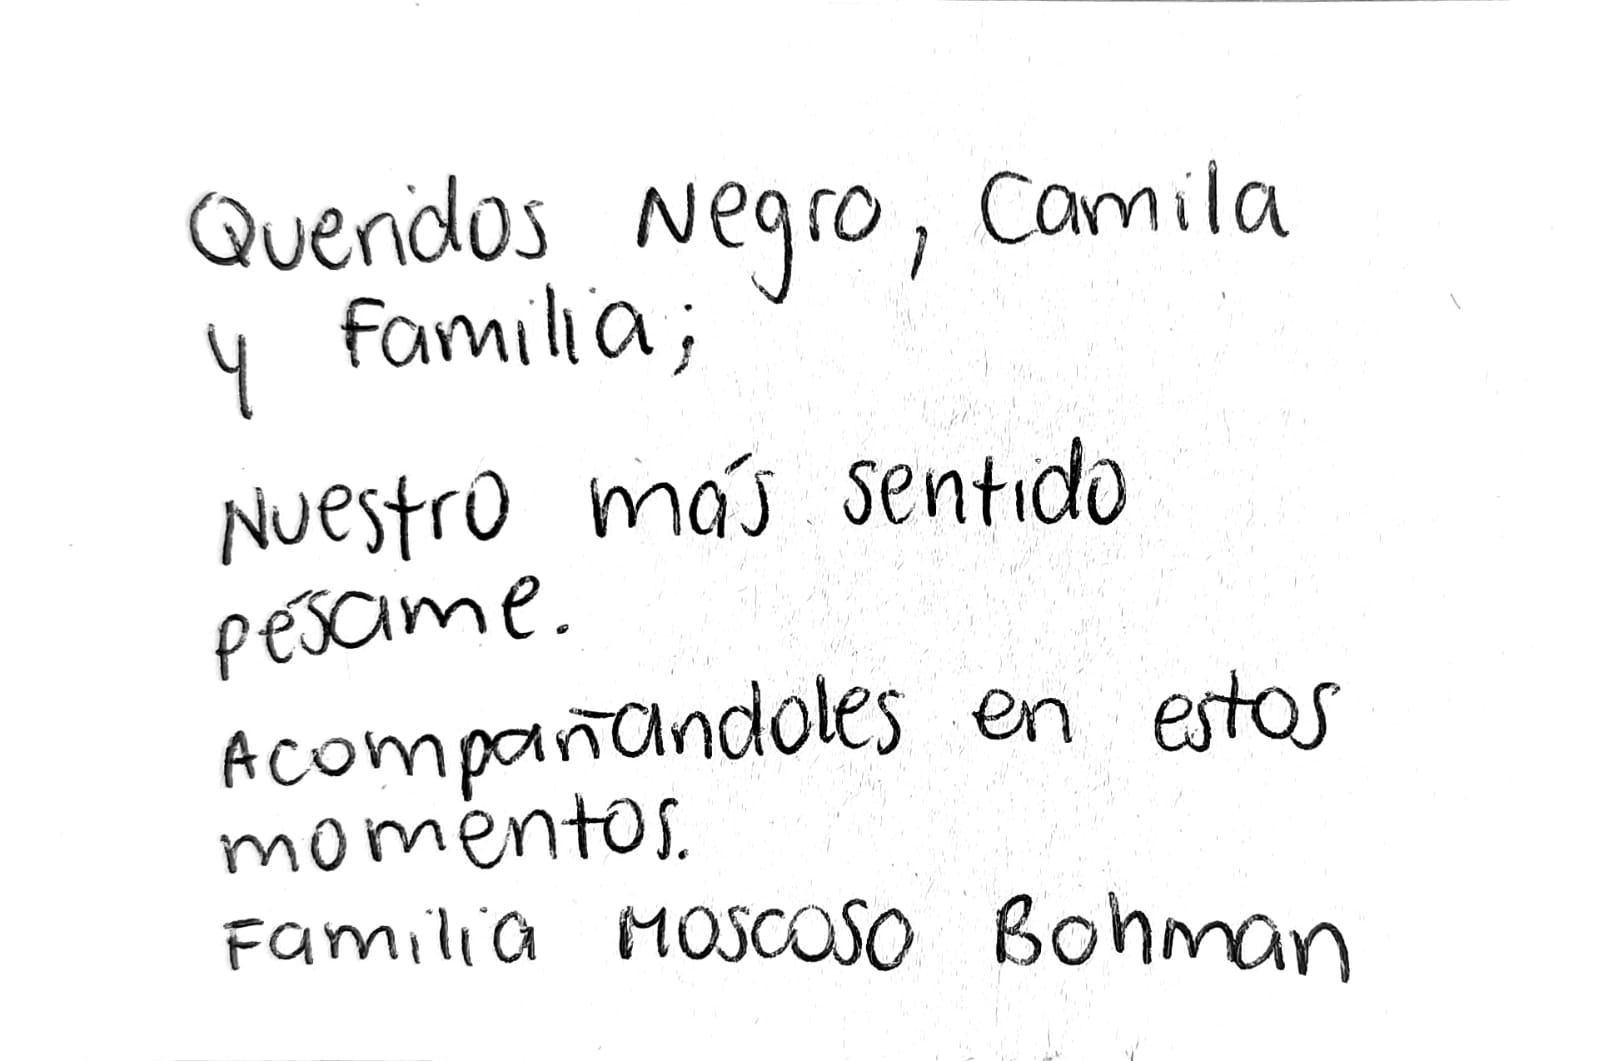 Queridos Negro, Camila
y Familia;
Nuestro más sentido
pésame.
Acompañandoles en estos
momentos.
Familia Moscoso Bohman